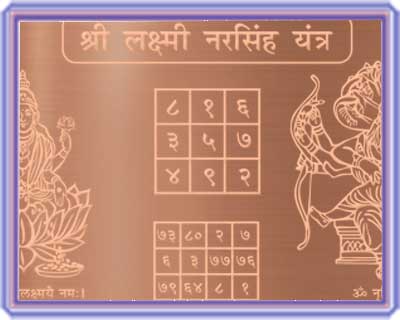 श्री लक्ष्मी नरसिंह यंत्र
८ १ ६
३ ५ ७
४ ९ २
७३ ८० २ ७
६ ३ ७७ ७६
७९ ६४ ८ १
लक्ष्मयै नमः।
ॐ